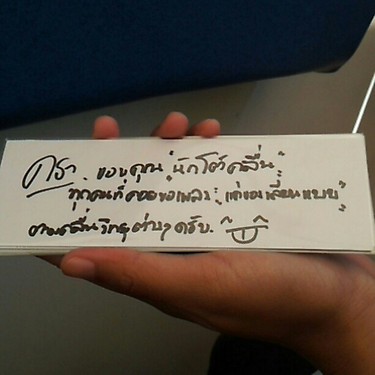 ขอบคุณ "นักโต้คลื่น"
ทุกคนที่คอยขอเพลง "แค่ของเลียนแบบ"
ตามคลื่นวิทยุต่างๆ ครับ.